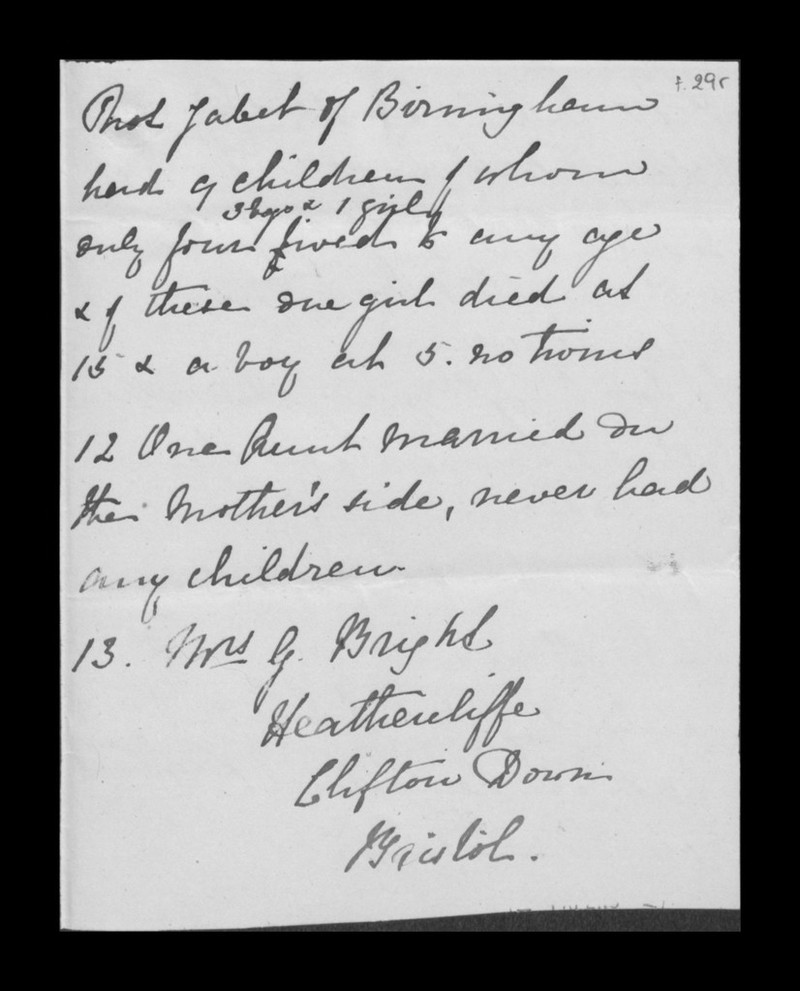 F. 29r
Thos Jabet of Birmingham
had 9 children of whom
3 boys & 1 girl
only four lived to any age
& of these one girl died at
15 & a boy at 5. no twins
12 One Aunt married on
the Mother's side, never had
any children.
13. Mrs G. Bright
Heathercliffe
Clifton Down
Bristol.